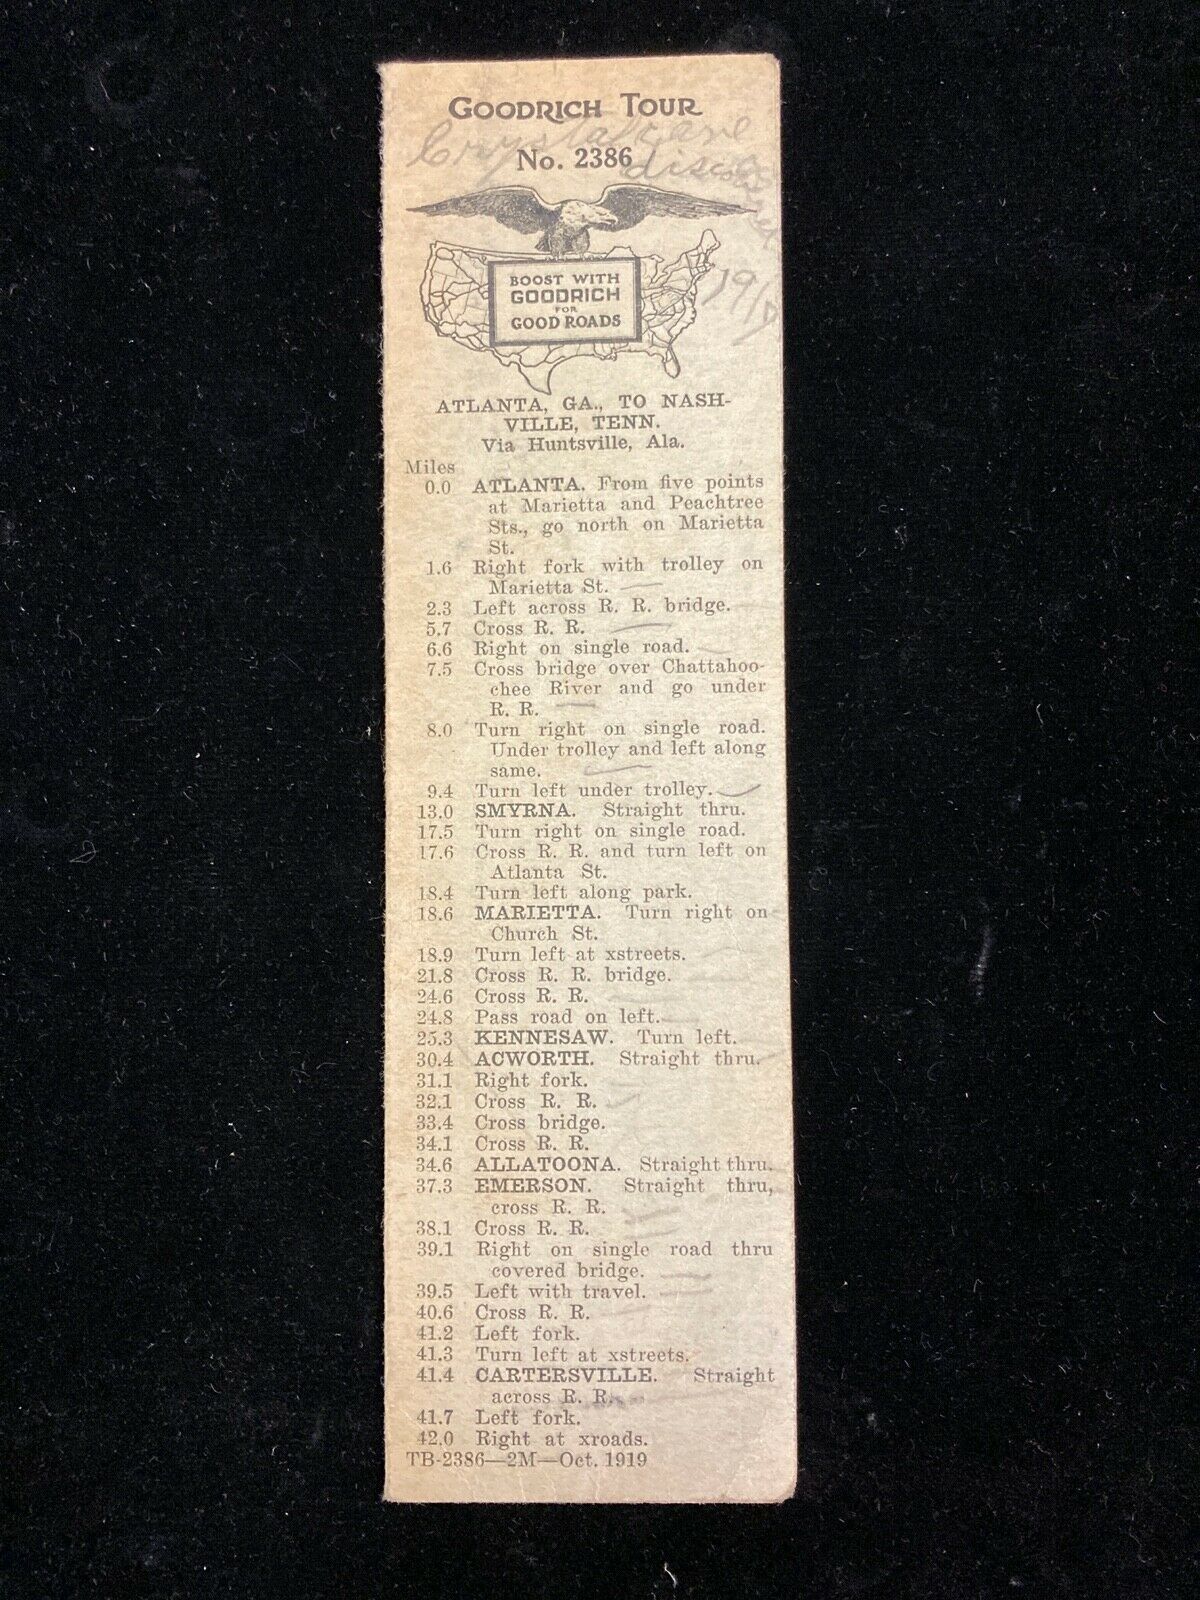 GOODRICH TOUR
No. 2386
discovered
BOOST WITH
GOODRICH
FOR
GOOD ROADS
ATLANTA, GA., TO NASH-
VILLE, TENN.
Via Huntsville, Ala.
Miles
0.0 ATLANTA. From five points
at Marietta and Peachtree
Sts., go north on Marietta
St.
1.6 Right fork with trolley on
Marietta St.
2.3 Left across R. R. bridge.
5.7 Cross R. R.
6.6 Right on single road.
7.5 Cross bridge over Chattahoo-
chee River and go under
R. R.
8.0 Turn right on single road.
Under trolley and left along
same.
9.4 Turn left under trolley.
13.0 SMYRNA. Straight thru.
17.5 Turn right on single road.
17.6 Cross R. R. and turn left on
Atlanta St.
18.4 Turn left along park.
18.6 MARIETTA. Turn right on
Church St.
18.9 Turn left at xstreets.
21.8 Cross R. R. bridge.
24.6 Cross R. R.
24.8 Pass road on left.
25.3 KENNESAW. Turn left.
30.4 ACWORTH. Straight thru.
31.1 Right fork.
32.1 Cross R. R.
33.4 Cross bridge.
34.1 Cross R. R.
34.6 ALLATOONA. Straight thru.
37.3 EMERSON. Straight thru,
cross R. R.
38.1 Cross R. R.
39.1 Right on single road thru
covered bridge.
39.5 Left with travel.
40.6 Cross R. R.
41.2 Left fork.
41.3 Turn left at xstreets.
41.4 CARTERSVILLE. Straight
across R. R.
41.7 Left fork.
42.0 Right at xroads.
TB-2386—2M—Oct. 1919